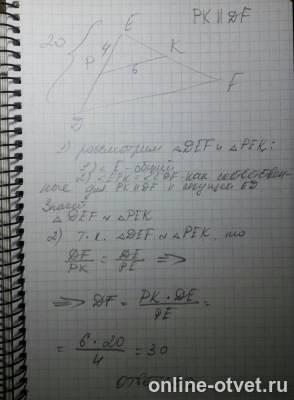 PK || DF
20
E
4
P
6
K
F
D
1) рассмотрим △DEF и △PEK:
1) ∠E - общий
2) ∠EPK = ∠EDF как соответствен-
ные для PK || DF и секущей ED
Значит
△DEF ∼ △PEK
2) Т.к. △DEF ∼ △PEK, то
DF/PK = DE/PE ⇒
⇒ DF = PK · DE / PE =
= 6 · 20 / 4 = 30
ответ:
online-otvet.ru